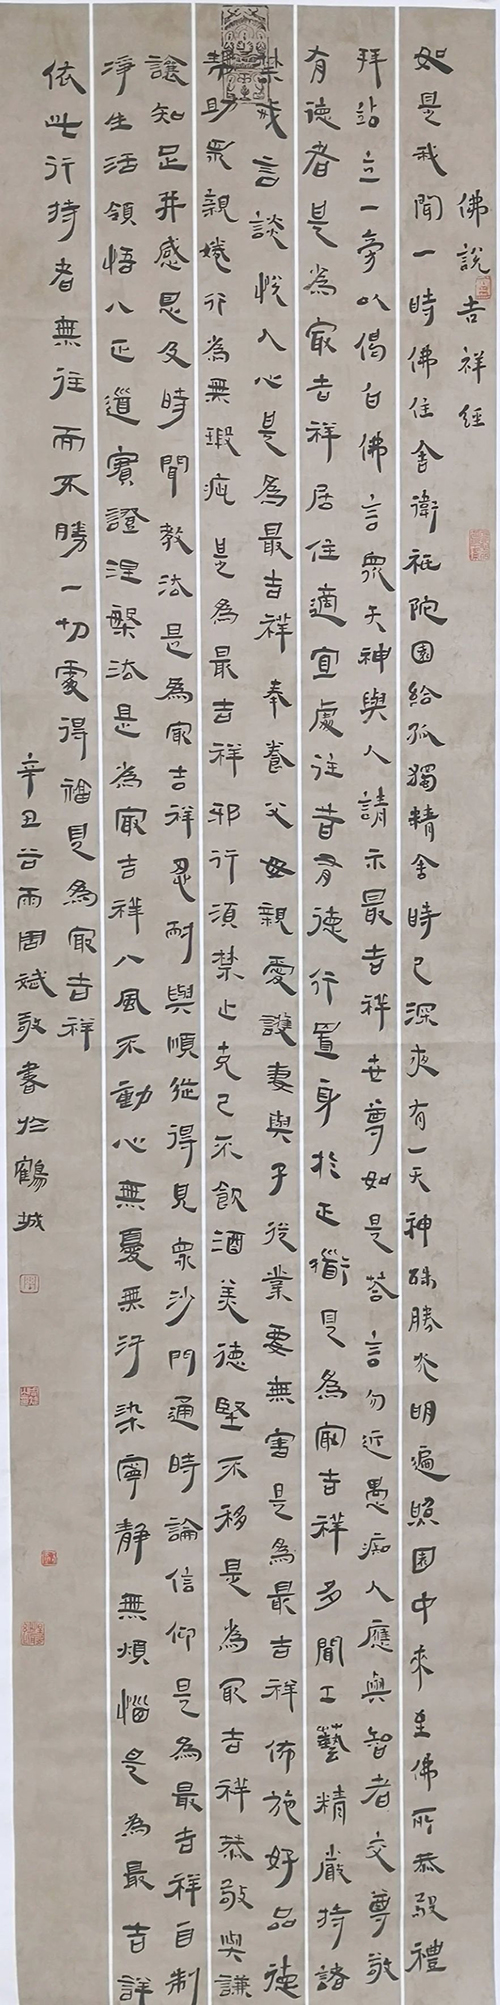 佛說吉祥經
如是我聞一時佛住舍衛祗陀園給孤獨精舍時已深夜有一天神殊勝光明遍照園中來至佛所恭敬禮
拜站立一旁以偈白佛言眾天神與人請示最吉祥世尊如是答言勿近愚痴人應與智者交尊敬
有德者是為最吉祥居住適宜處往昔有德行置身於正道是為最吉祥多聞工藝精嚴持諸
禁戒言談悅人心是為最吉祥奉養父母親愛護妻與子從業要無害是為最吉祥佈施好品德
幫助眾親婘行為無瑕疵是為最吉祥邪行須禁止克己不飲酒美德堅不移是為最吉祥恭敬與謙
讓知足并感恩及時聞教法是為最吉祥忍耐與順從得見眾沙門適時論信仰是為最吉祥自制
淨生活領悟八正道實證涅槃法是為最吉祥八風不動心無憂無汙染寧靜無煩惱是為最吉祥
依此行持者無往而不勝一切處得福是為最吉祥
辛丑谷雨周斌敬書於鶴城